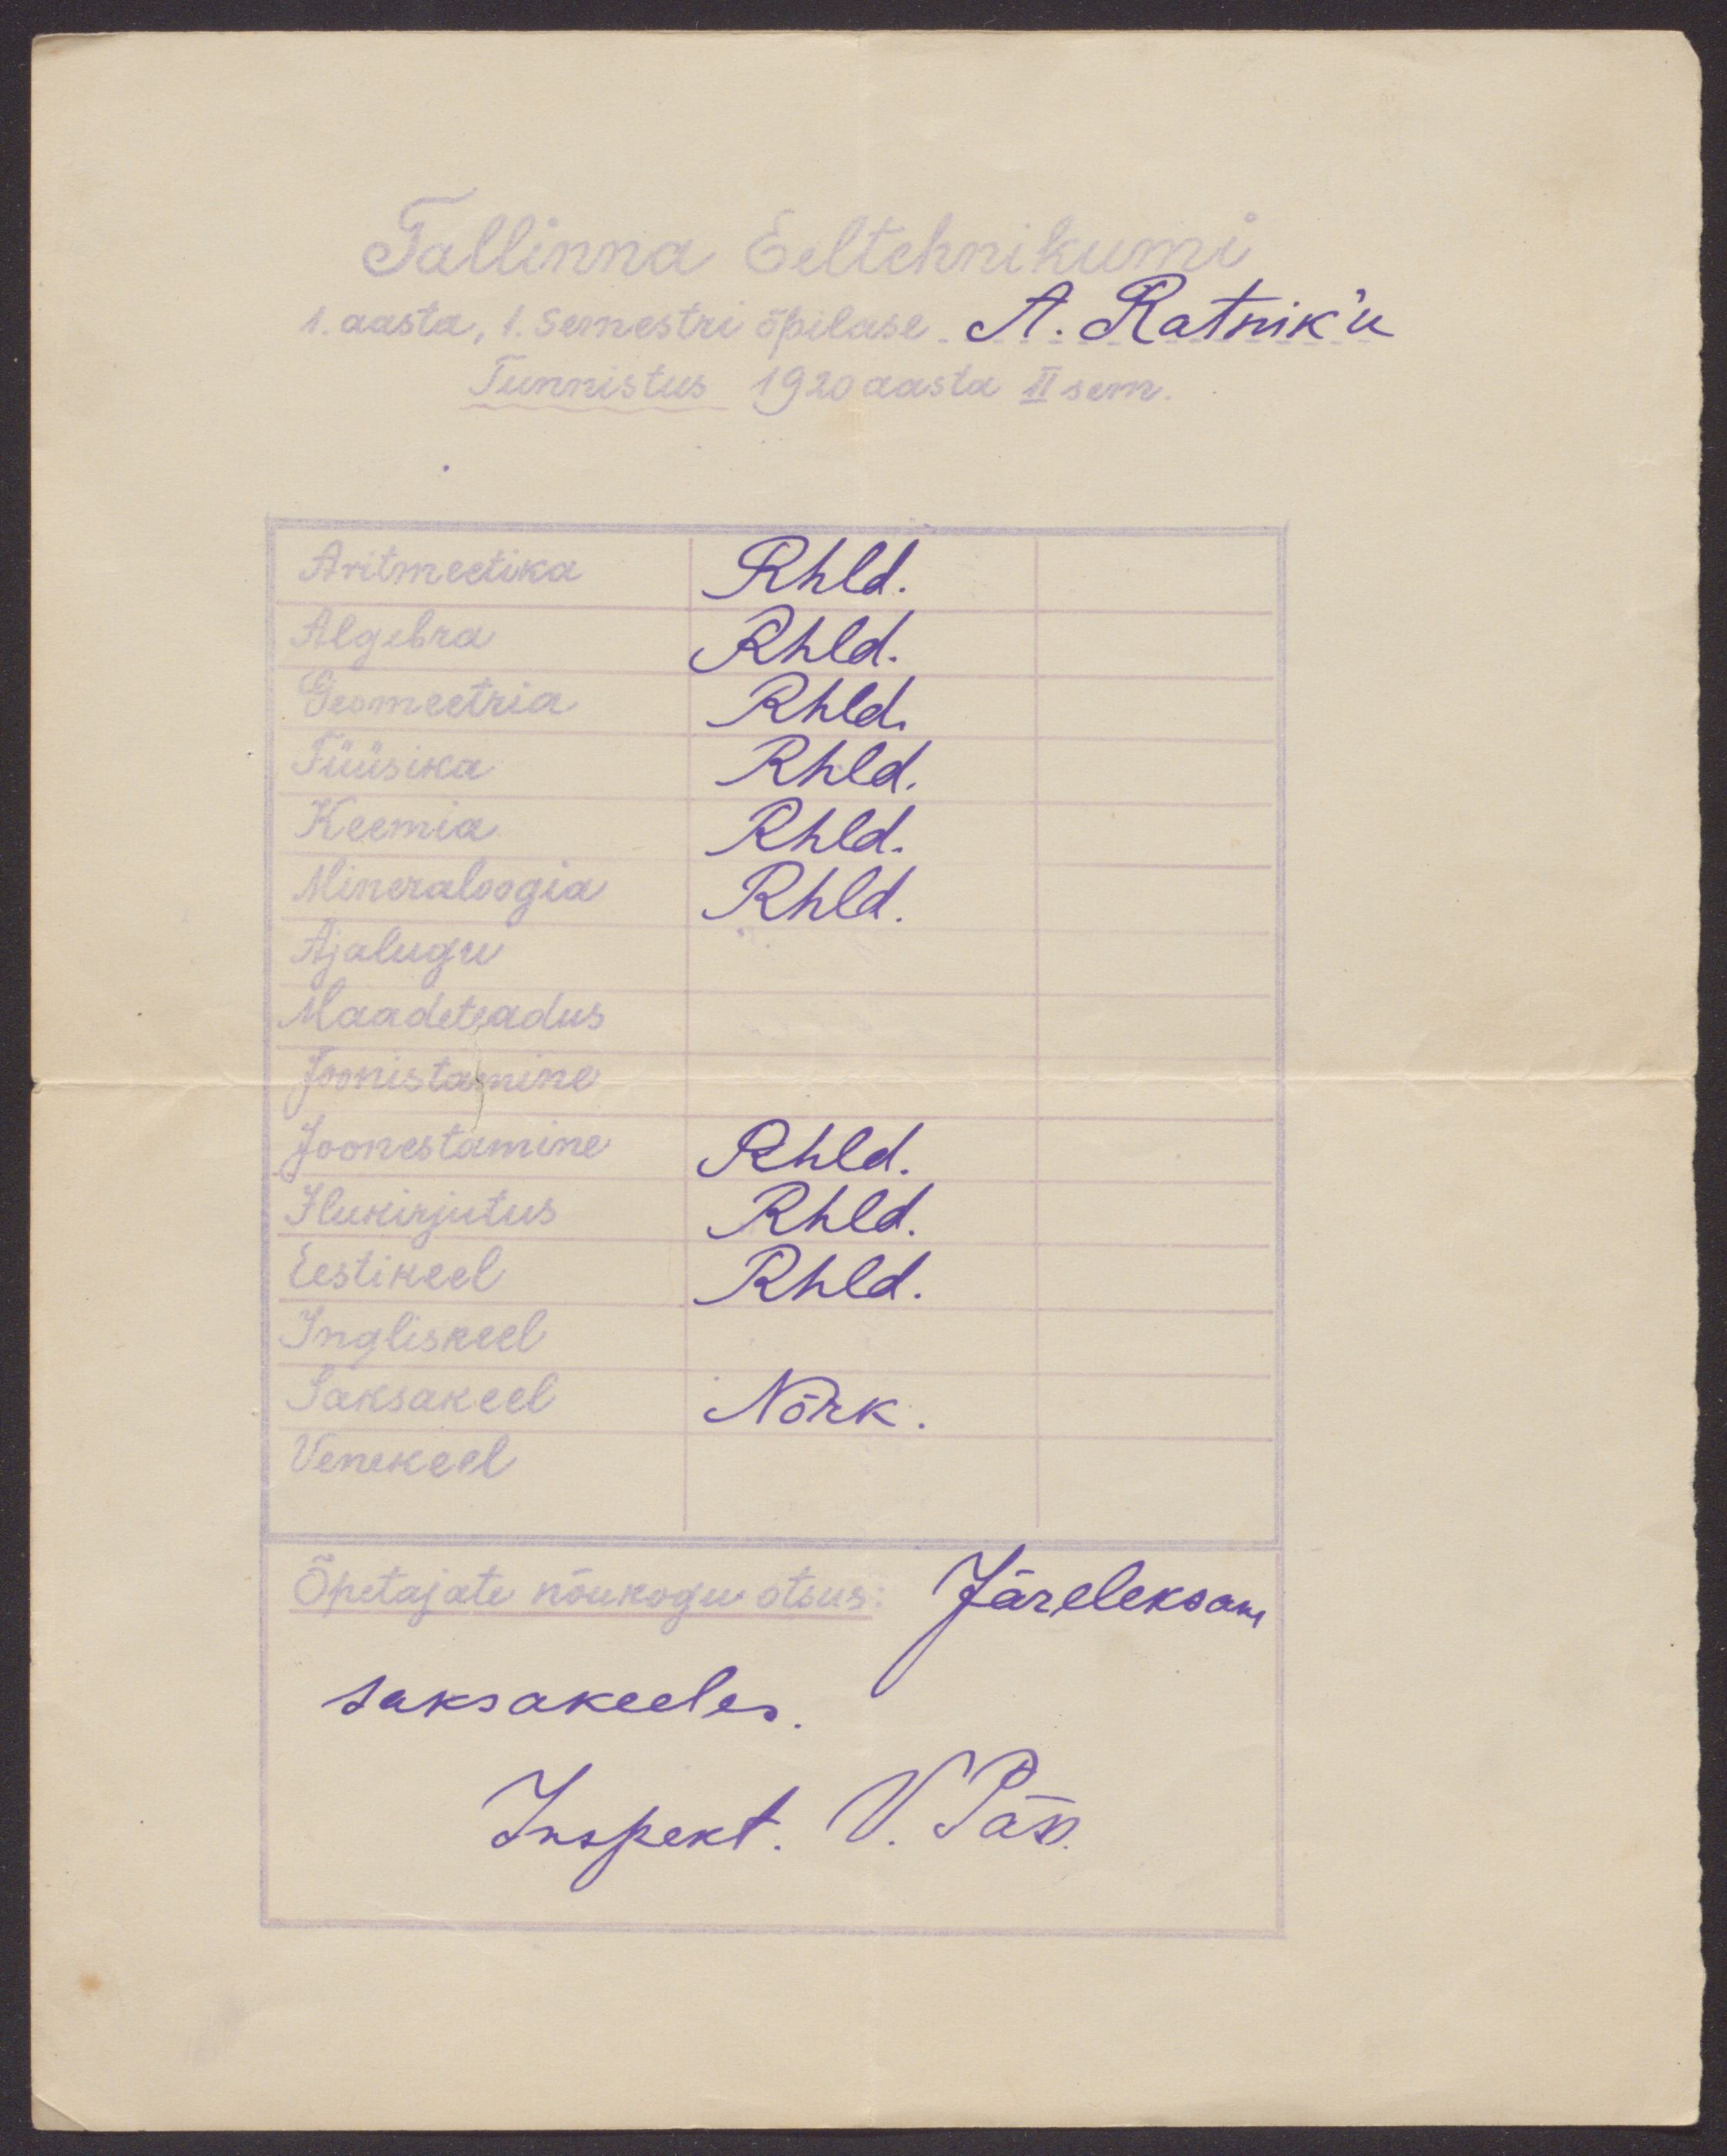 Tallinna Eeltehnikumi
1. aasta, 1. Semestri õpilase A. Ratnik'u
Tunnistus 1920 aasta II sem.
Aritmeetika Rhld.
Algebra Rhld.
Geomeetria Rhld.
Füüsika Rhld.
Keemia Rhld.
Mineraloogia Rhld.
Ajalugu
Maadeteadus
Joonistamine
Joonestamine Rhld.
Ilukirjutus Rhld.
Eestikeel Rhld.
Ingliskeel
Saksakeel Nõrk.
Venekeel
Õpetajate nõukogu otsus: Järeleksam
saksakeeles.
Inspekt. V. Päss.